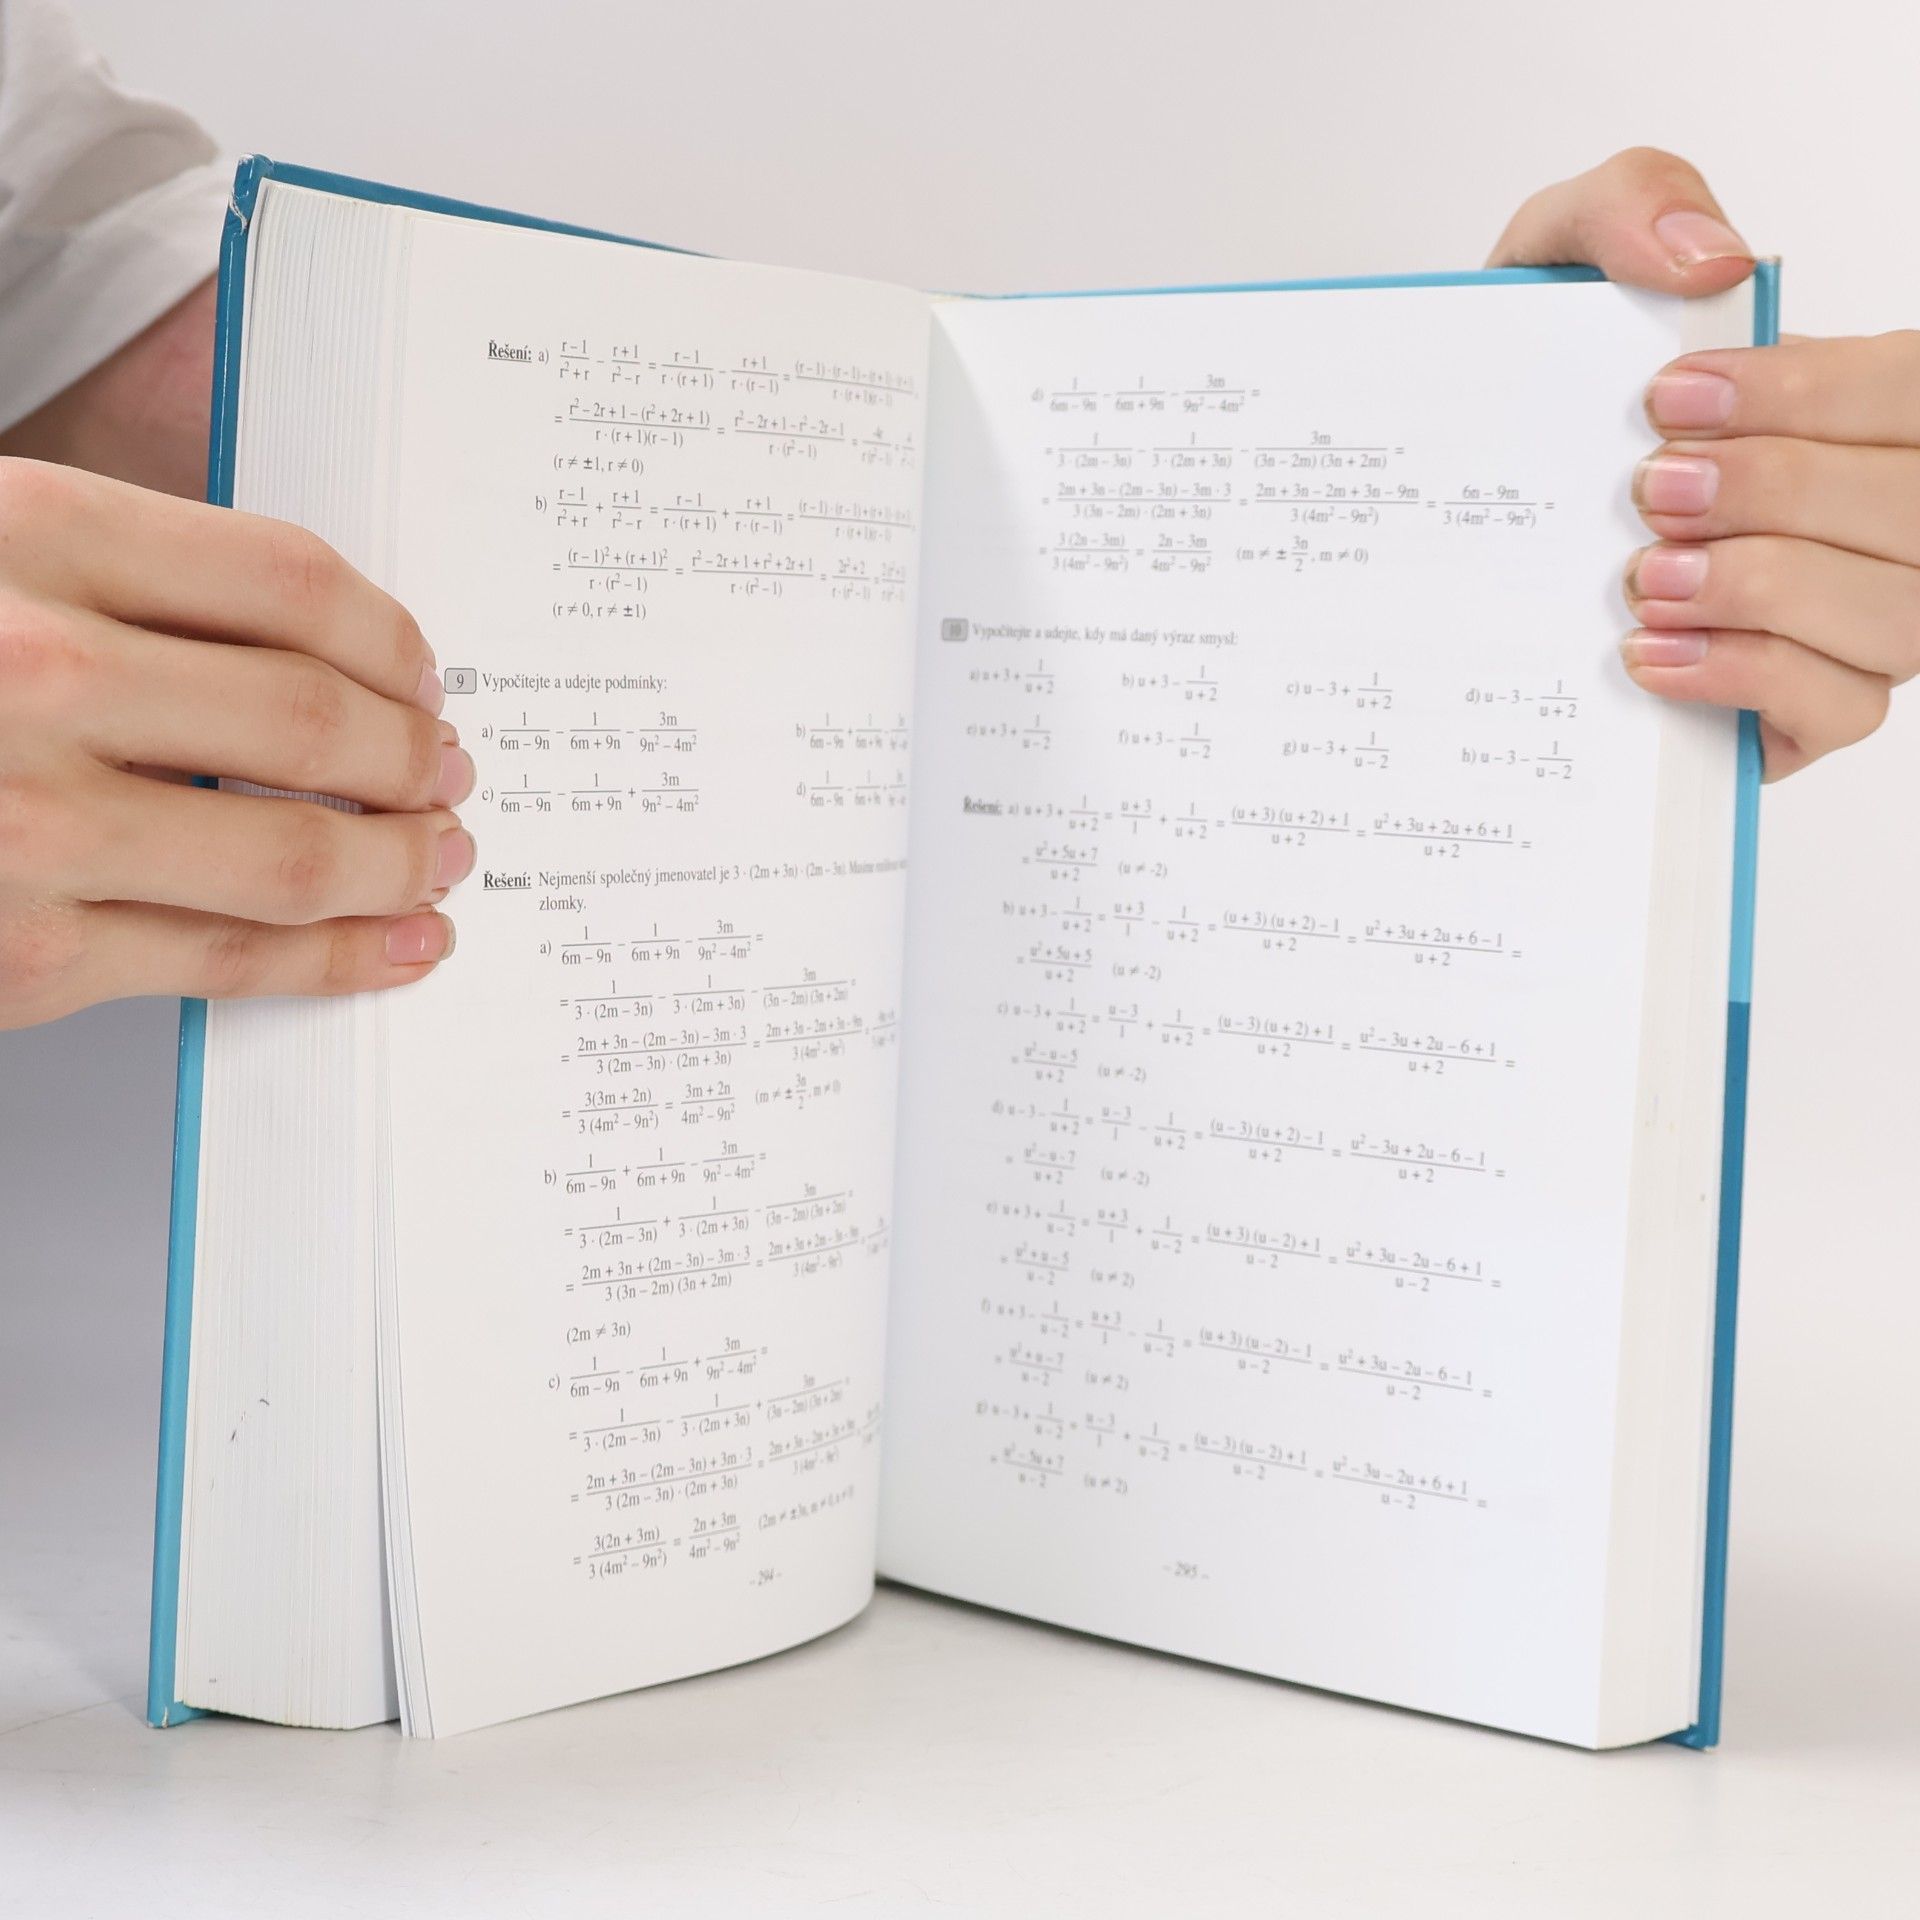 Řešení: a) (r – 1)/(r² + r) – (r + 1)/(r² – r) = (r – 1)/(r · (r + 1)) – (r + 1)/(r · (r – 1)) =
= (r² – 2r + 1 – (r² + 2r + 1))/(r · (r + 1)(r – 1)) = (r² – 2r + 1 – r² – 2r – 1)/(r · (r² – 1)) =
(r ≠ ±1, r ≠ 0)
b) (r – 1)/(r² + r) + (r + 1)/(r² – r) = (r – 1)/(r · (r + 1)) + (r + 1)/(r · (r – 1)) =
= ((r – 1)² + (r + 1)²)/(r · (r² – 1)) = (r² – 2r + 1 + r² + 2r + 1)/(r · (r² – 1)) = (2r² + 2)/(r · (r² – 1)) =
(r ≠ 0, r ≠ ±1)
9 Vypočítejte a udejte podmínky:
a) 1/(6m – 9n) – 1/(6m + 9n) – 3m/(9n² – 4m²) b)
c) 1/(6m – 9n) – 1/(6m + 9n) + 3m/(9n² – 4m²) d)
Řešení: Nejmenší společný jmenovatel je 3 · (2m + 3n) · (2m – 3n). Musíme
zlomky.
a) 1/(6m – 9n) – 1/(6m + 9n) – 3m/(9n² – 4m²) =
= 1/(3 · (2m – 3n)) – 1/(3 · (2m + 3n)) – 3m/((3n – 2m) (3n + 2m)) =
= (2m + 3n – (2m – 3n) – 3m · 3)/(3 (2m – 3n) · (2m + 3n)) = (2m + 3n – 2m + 3n – 9m)/(3 (4m² – 9n²)) =
= 3(3m + 2n)/(3 (4m² – 9n²)) = (3m + 2n)/(4m² – 9n²) (m ≠ ± 3n/2, m ≠ 0)
b) 1/(6m – 9n) + 1/(6m + 9n) – 3m/(9n² – 4m²) =
= 1/(3 · (2m – 3n)) + 1/(3 · (2m + 3n)) – 3m/((3n – 2m) (3n + 2m)) =
= (2m + 3n + (2m – 3n) – 3m · 3)/(3 (3n – 2m) (3n + 2m)) =
(2m ≠ 3n)
c) 1/(6m – 9n) – 1/(6m + 9n) + 3m/(9n² – 4m²) =
= 1/(3 · (2m – 3n)) – 1/(3 · (2m + 3n)) + 3m/((3n – 2m) (3n + 2m)) =
= (2m + 3n – (2m – 3n) + 3m · 3)/(3 (2m – 3n) · (2m + 3n)) =
= 3(2n + 3m)/(3 (4m² – 9n²)) = (2n + 3m)/(4m² – 9n²)
– 294 –
d) 1/(6m – 9n) – 1/(6m + 9n) – 3m/(9n² – 4m²) =
= 1/(3 · (2m – 3n)) – 1/(3 · (2m + 3n)) – 3m/((3n – 2m) (3n + 2m)) =
= (2m + 3n – (2m – 3n) – 3m · 3)/(3 (3n – 2m) · (2m + 3n)) = (2m + 3n – 2m + 3n – 9m)/(3 (4m² – 9n²)) = (6n – 9m)/(3 (4m² – 9n²)) =
= 3 (2n – 3m)/(3 (4m² – 9n²)) = (2n – 3m)/(4m² – 9n²) (m ≠ ± 3n/2, m ≠ 0)
10 Vypočítejte a udejte, kdy má daný výraz smysl:
a) u + 3 + 1/(u + 2) b) u + 3 – 1/(u + 2) c) u – 3 + 1/(u + 2) d) u – 3 – 1/(u + 2)
e) u + 3 + 1/(u – 2) f) u + 3 – 1/(u – 2) g) u – 3 + 1/(u – 2) h) u – 3 – 1/(u – 2)
Řešení: a) u + 3 + 1/(u + 2) = (u + 3)/1 + 1/(u + 2) = ((u + 3) (u + 2) + 1)/(u + 2) = (u² + 3u + 2u + 6 + 1)/(u + 2) =
= (u² + 5u + 7)/(u + 2) (u ≠ -2)
b) u + 3 – 1/(u + 2) = (u + 3)/1 – 1/(u + 2) = ((u + 3) (u + 2) – 1)/(u + 2) = (u² + 3u + 2u + 6 – 1)/(u + 2) =
= (u² + 5u + 5)/(u + 2) (u ≠ -2)
c) u – 3 + 1/(u + 2) = (u – 3)/1 + 1/(u + 2) = ((u – 3) (u + 2) + 1)/(u + 2) = (u² – 3u + 2u – 6 + 1)/(u + 2) =
= (u² – u – 5)/(u + 2) (u ≠ -2)
d) u – 3 – 1/(u + 2) = (u – 3)/1 – 1/(u + 2) = ((u – 3) (u + 2) – 1)/(u + 2) = (u² – 3u + 2u – 6 – 1)/(u + 2) =
= (u² – u – 7)/(u + 2) (u ≠ -2)
e) u + 3 + 1/(u – 2) = (u + 3)/1 + 1/(u – 2) = ((u + 3) (u – 2) + 1)/(u – 2) = (u² + 3u – 2u – 6 + 1)/(u – 2) =
= (u² + u – 5)/(u – 2) (u ≠ 2)
f) u + 3 – 1/(u – 2) = (u + 3)/1 – 1/(u – 2) = ((u + 3) (u – 2) – 1)/(u – 2) = (u² + 3u – 2u – 6 – 1)/(u – 2) =
= (u² + u – 7)/(u – 2) (u ≠ 2)
g) u – 3 + 1/(u – 2) = (u – 3)/1 + 1/(u – 2) = ((u – 3) (u – 2) + 1)/(u – 2) = (u² – 3u – 2u + 6 + 1)/(u – 2) =
= (u² – 5u + 7)/(u – 2) (u ≠ 2)
– 295 –